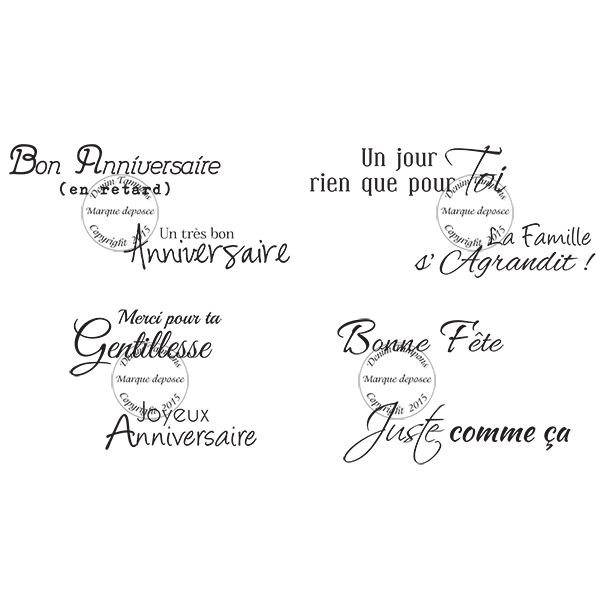 Bon Anniversaire
(en retard)
Denim Tampons
Marque deposee
Copyright 2015
Un très bon
Anniversaire
Un jour
rien que pour Toi
Denim Tampons
Marque deposee
Copyright 2015
La Famille
s' Agrandit !
Merci pour ta
Gentillesse
Denim Tampons
Marque deposee
Copyright 2015
Joyeux
Anniversaire
Bonne Fête
Denim Tampons
Marque deposee
Copyright 2015
Juste comme ça